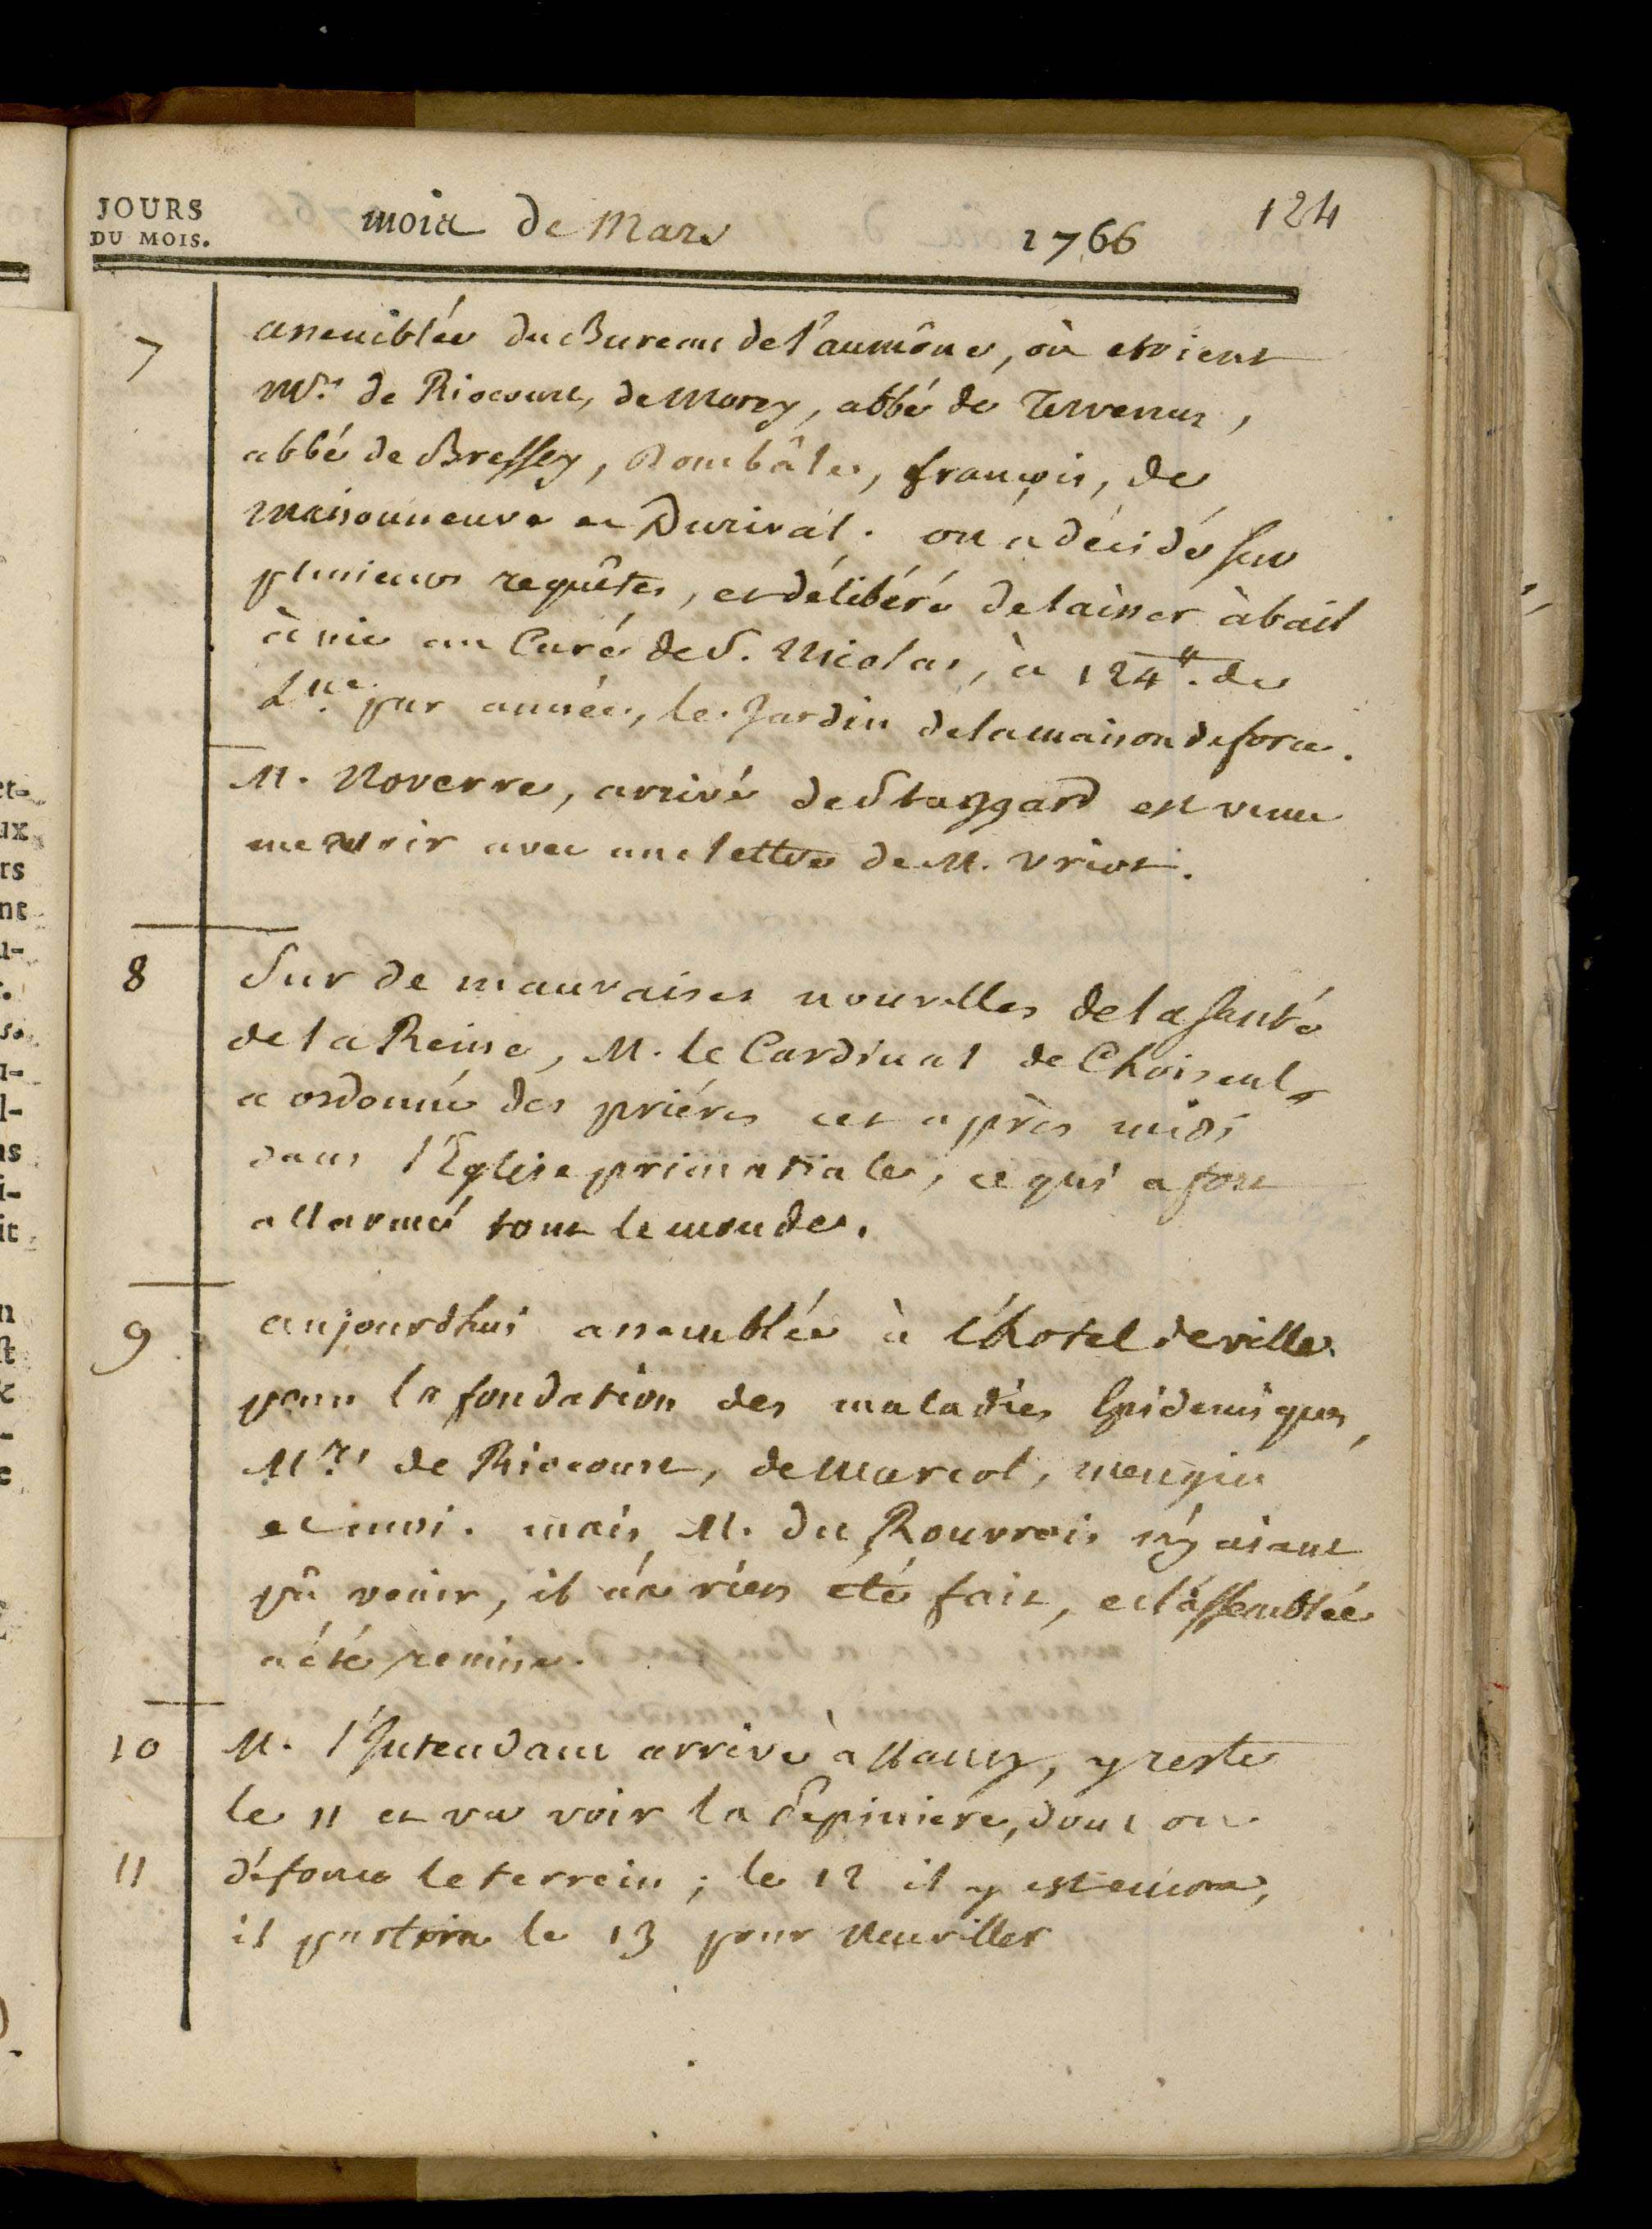 JOURS
DU MOIS.
mois de Mars
1766
124
7
assemblée du Bureau de l'aumône, où etoient
Mrs. de Riocourt, de Morey, abbé de Tervenus,
abbé de Bressey, Dombâle, françois, de
maisonneuve et Durival. on a décidé sur
plusieurs requêtes, et délibéré de laisser à bail
à vie au Curé de S. Nicolas, à 124 ₶. de
Lne. par année, le Jardin de la maison de force.
M. Noverre, arrivé de Stuggard est venu
me voir avec une lettre de M. Uriot.
8
Sur de mauvaises nouvelles de la santé
de la Reine, M. le Cardinal de Choiseul
a ordonné des priéres cet après midi
dans l'Eglise primatiale, ce qui a fort
allarmé tout le monde.
9
aujourdhui assemblée à l'hotel de ville
pour la fondation des maladies Epidemiques,
Mrs. de Riocourt, de Marcol, mengin
et moi. mais M. du Rouvrois n'y aiant
pû venir, il n'a rien eté fait, et l'assemblée
a été remise.
10
M. l'Intendant arrive à Nancy, y reste
le 11 et va voir la Pepiniére, dont on
11
défonce le terrein; le 12 il y est encore,
il partira le 13 pour Neuviller